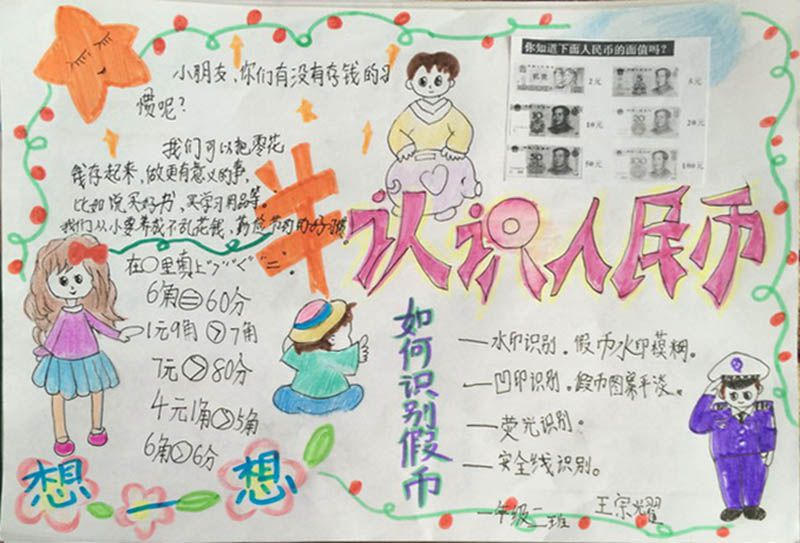 小朋友，你们有没有存钱的习
惯呢？
我们可以把零花
钱存起来，做更有意义的事。
比如说买好书，买学习用品等。
我们从小要养成不乱花钱，勤俭节约的好习惯
你知道下面人民币的面值吗？
2元
5元
10元
20元
50元
100元
认识人民币
在○里填上">""<""="
6角=60分
1元9角>7角
7元>80分
4元1角>5角
6角>6分
想一想
如何识别假币
—水印识别，假币水印模糊。
—凹印识别，假币图案平淡。
—荧光识别。
—安全线识别。
一年级二班 王宗耀